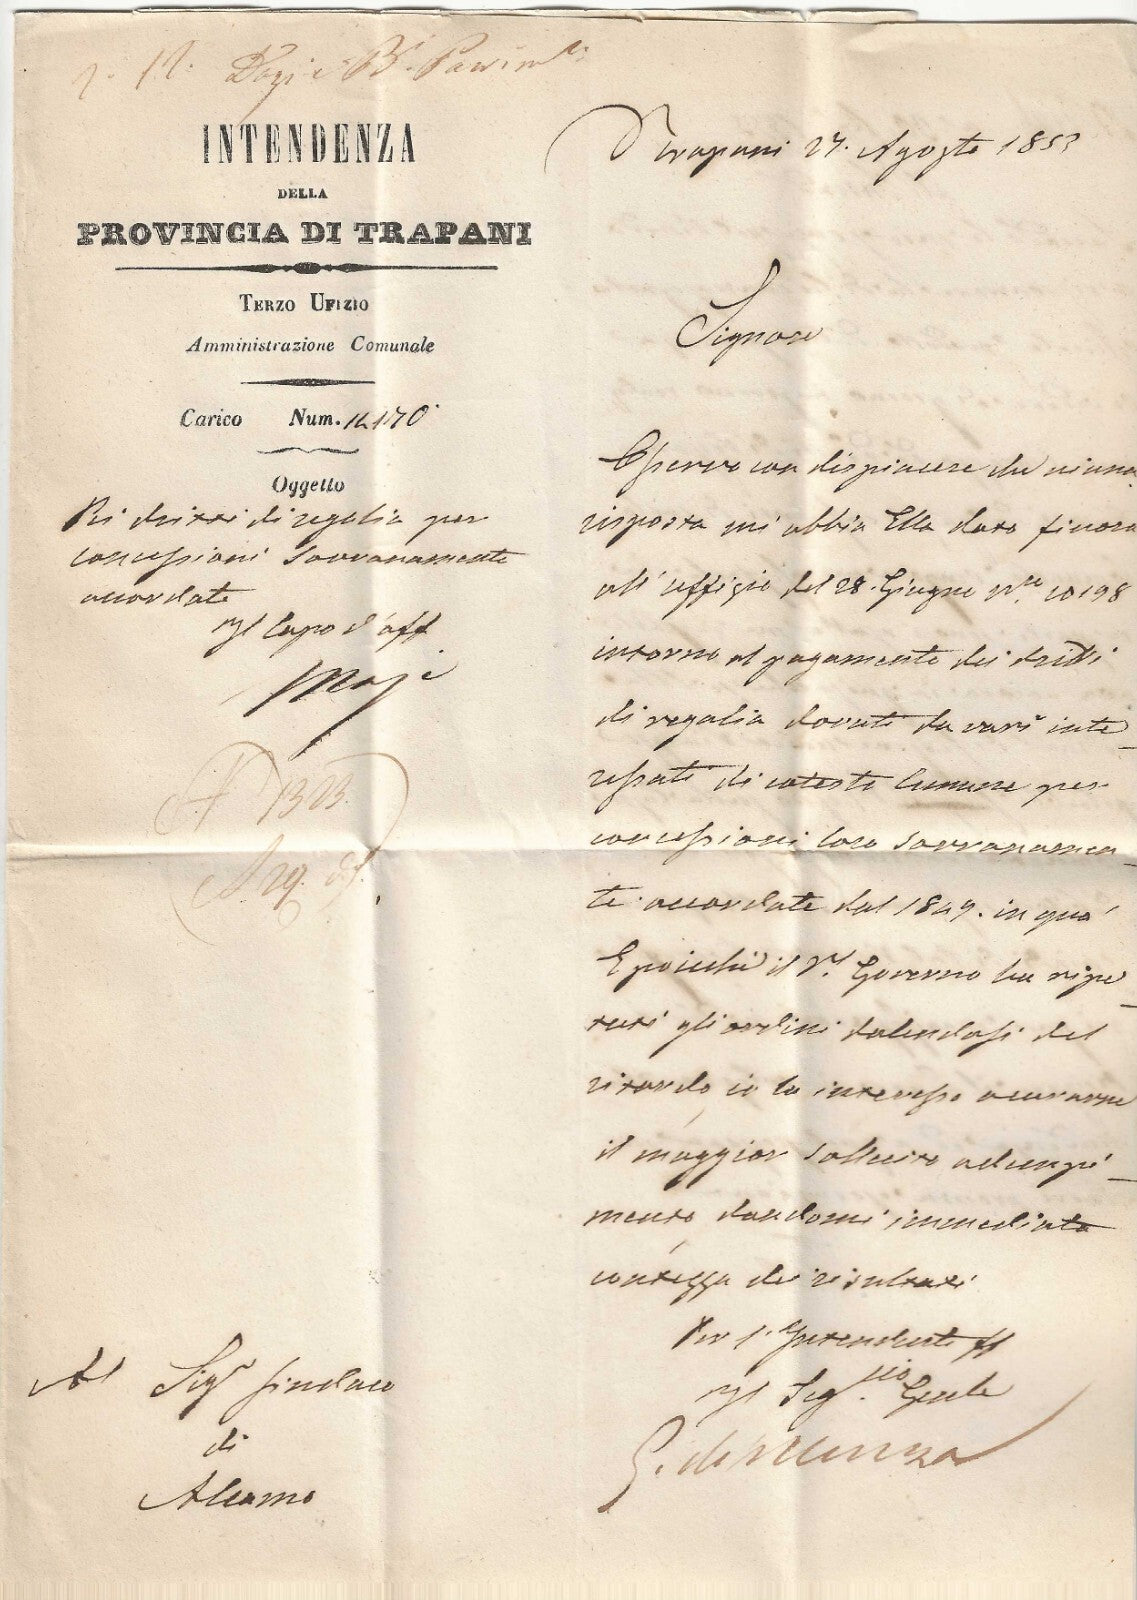 INTENDENZA
DELLA
PROVINCIA DI TRAPANI
TERZO UFIZIO
Amministrazione Comunale
Carico Num. 14170
Oggetto
Pei dritti di regalia per
concessioni sovranamente
accordate
Il Capo d'aff
Al Sigr Sindaco
di
Alcamo
Trapani 27. Agosto 1853
Signore
Osservo con dispiacere che niuna
risposta mi abbia Ella dato finora
all'uffizio del 28. Giugno Nro 10198
intorno al pagamento dei dritti
di regalia dovuti da varî inte_
ressati di cotesto Comune per
concessioni loro sovranamen_
te accordate dal 1849. in qua'
E poicchè il Rl. Governo ha ripe_
tuti gli ordini dolendosi del
ritardo io la interesso accurarne
il maggior sollecito adempi_
mento dandomi immediata
contezza dei risultati
Per l'Intendente ff
Il Segrio Gnle